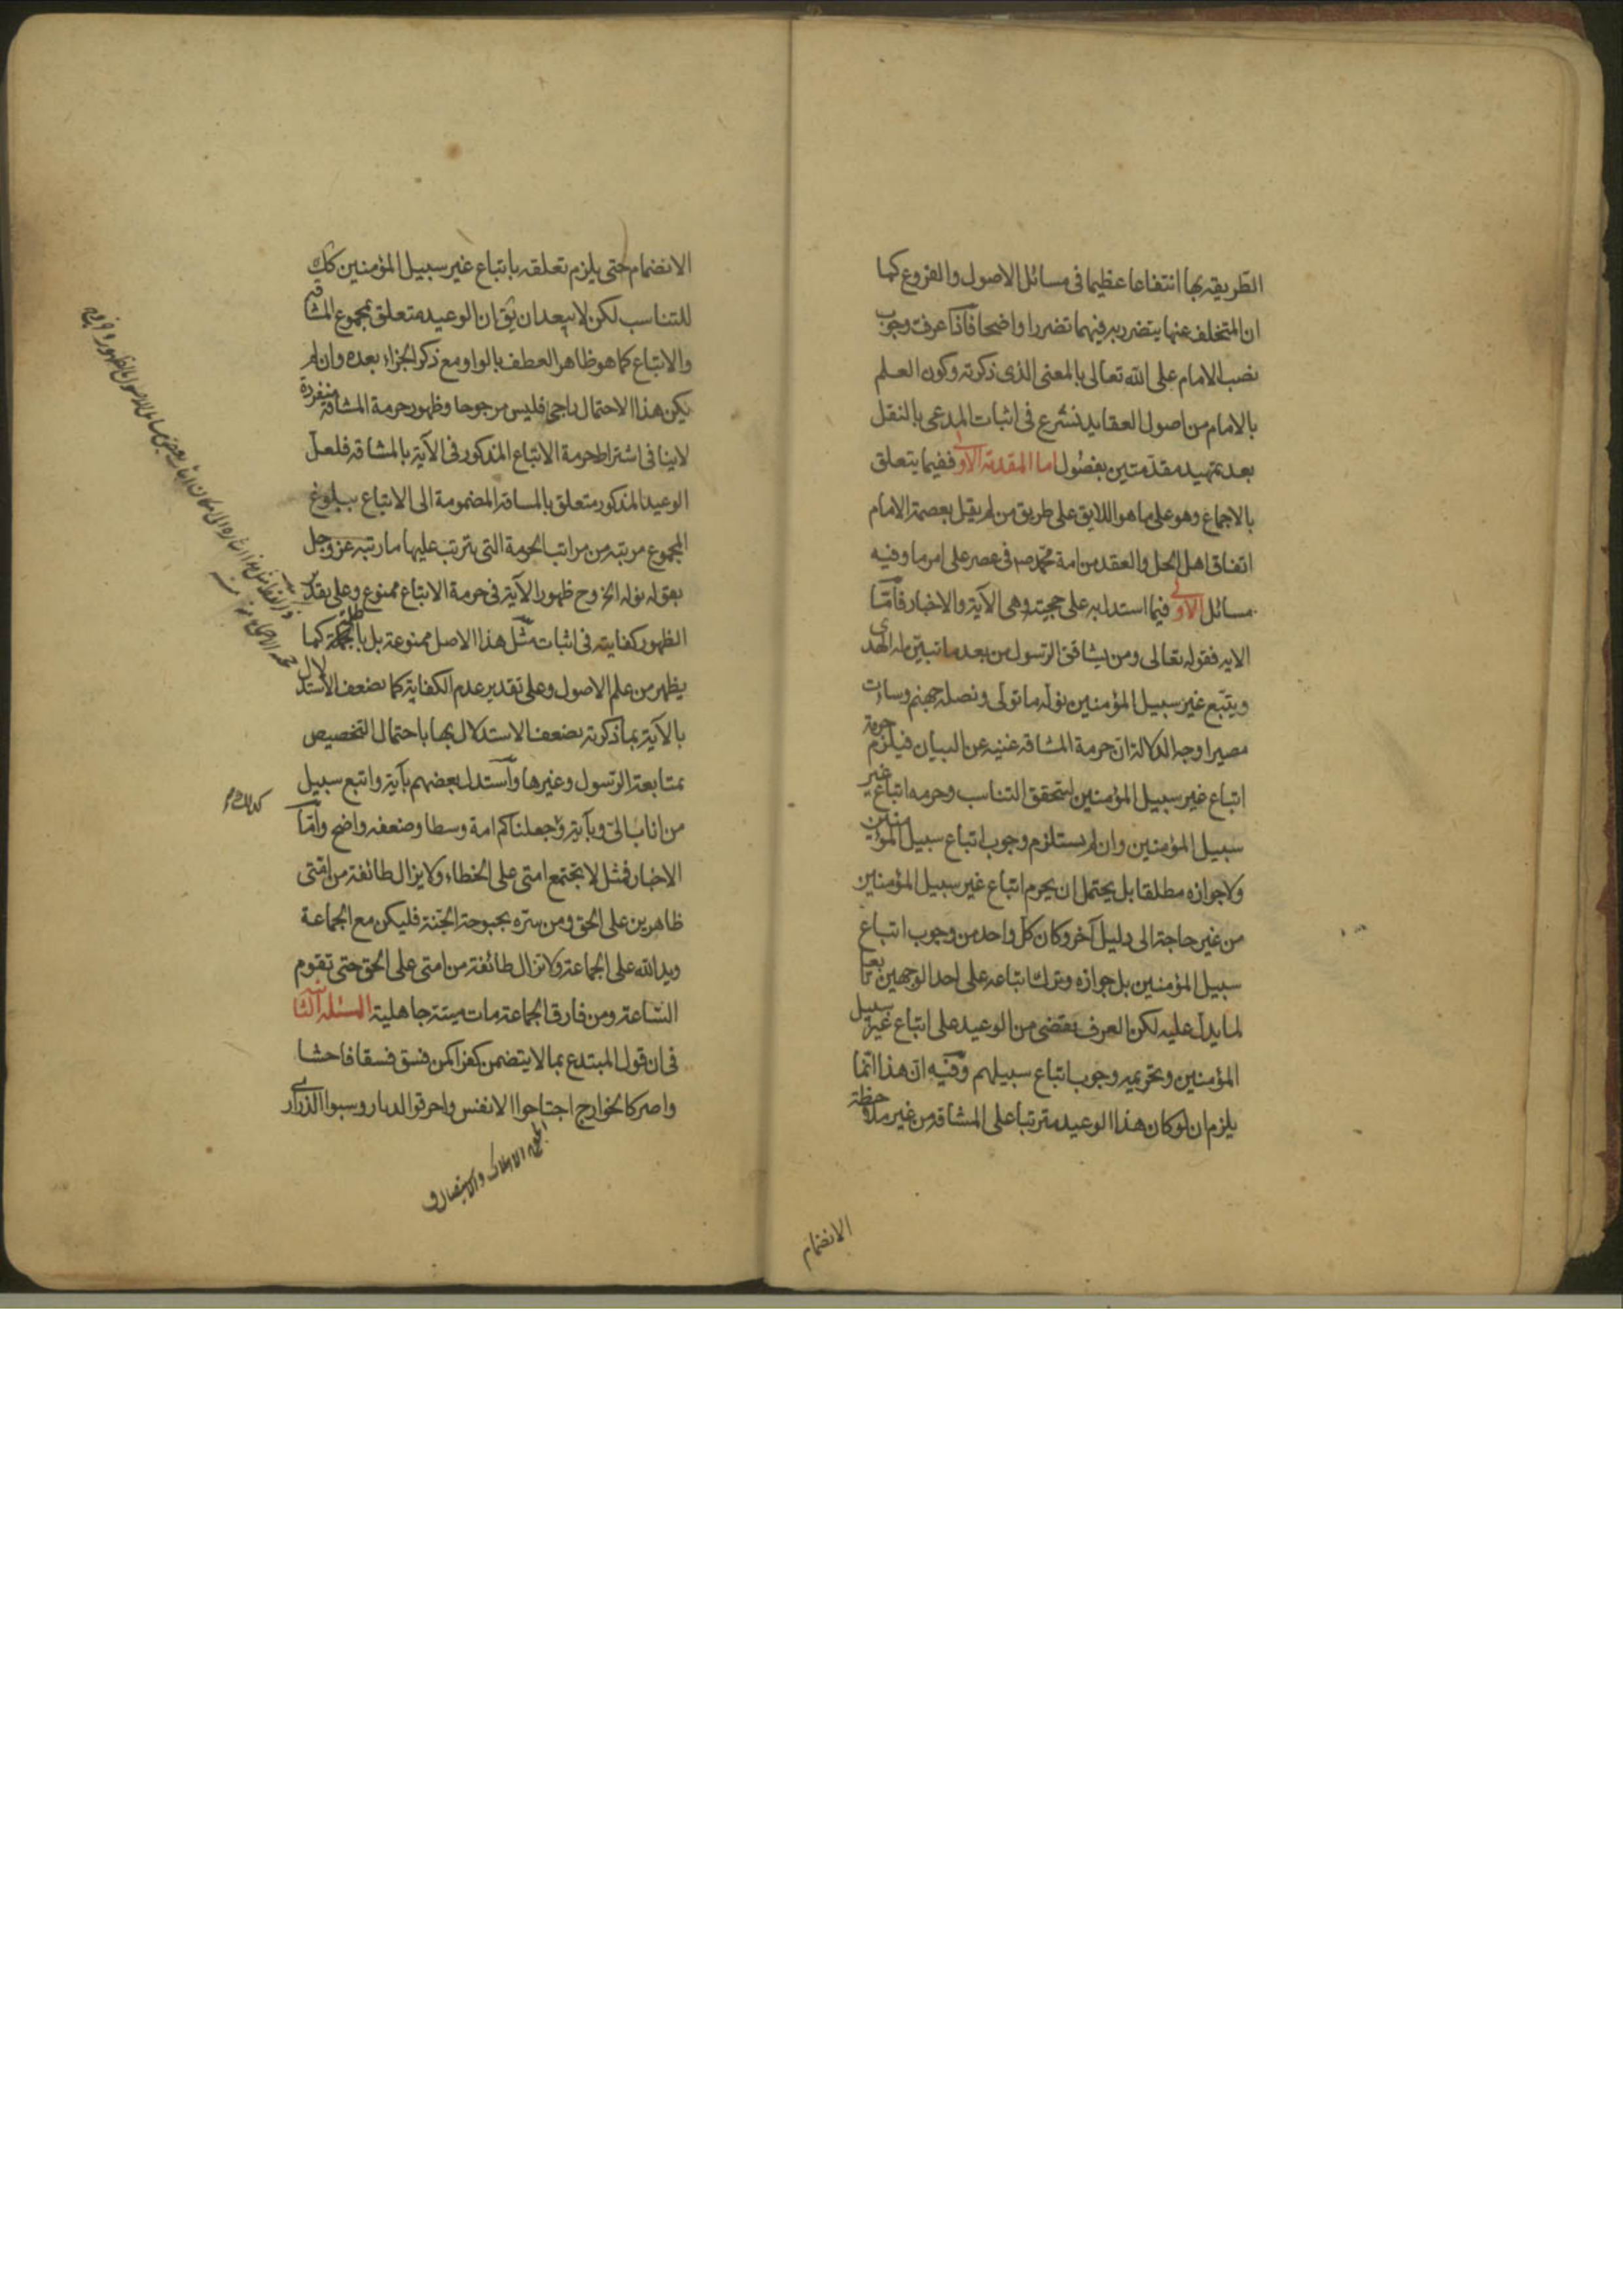 الطريقة بها انتفاعا عظيما فى مسائل الاصول والفروع كما
ان المتخلف عنها يتضرر به فيهما تضررا واضحا فاذا عرفت وجوب
نصب الامام على الله تعالى بالمعنى الذى ذكرته وكون العلم
بالامام من اصول العقايد نشرع فى اثبات المدعى بالنقل
بعد تمهيد مقدمتين بفصول اما المقدمة الاولى ففيما يتعلق
بالاجماع وهو على ما هو اللايق على طريق من لم يقل بعصمة الامام
اتفاق اهل الحل والعقد من امة محمد ص فى عصر على امر ما وفيه
مسائل الاولى فيما استدل به على حجيته وهى الآية والاخبار فامّا
الاية فقوله تعالى ومن يشاقق الرسول من بعد ما تبين له الهدى
ويتبع غير سبيل المؤمنين نوله ما تولى ونصله جهنم وساءت
مصيرا وجه الدلالة ان حرمة المشاقة غنية عن البيان فيلزم حرمة
اتباع غير سبيل المؤمنين لتحقق التناسب وحرمة اتباع غير
سبيل المؤمنين وان لم يستلزم وجوب اتباع سبيل المؤمنين
ولا جوازه مطلقا بل يحتمل ان يحرم اتباع غير سبيل المؤمنين
من غير حاجة الى دليل آخر وكان كل واحد من وجوب اتباع
سبيل المؤمنين بل جوازه وترك اتباعه على احد الوجهين تابعا
لما يدل عليه لكن العرف يقتضى من الوعيد على اتباع غير سبيل
المؤمنين وتحريمه وجوب اتباع سبيلهم وفيه ان هذا انما
يلزم ان لو كان هذا الوعيد مترتبا على المشاقة من غير ملاحظة
الانضمام
الانضمام حتى يلزم تعلقه باتباع غير سبيل المؤمنين كك
للتناسب لكن لا يبعد ان يق ان الوعيد متعلق بمجموع المشاقة
والاتباع كما هو ظاهر العطف بالواو مع ذكر الجزاء بعده وان لم
يكن هذا الاحتمال راجحا فليس مرجوحا وظهور حرمة المشاقة منفردة
لا ينافى اشتراط حرمة الاتباع المذكور فى الآية بالمشاقة فلعل
الوعيد المذكور متعلق بالمشاقة المضمومة الى الاتباع ببلوغ
المجموع مرتبة من مراتب الحرمة التى يترتب عليها ما رتبه عز وجل
بقوله نوله الخ وح ظهور الآية فى حرمة الاتباع ممنوع وعلى تقدير
الظهور كفايته فى اثبات مثل هذا الاصل ممنوعة بل باطلة كما
يظهر من علم الاصول وعلى تقدير عدم الكفاية كما يضعف الاستدلال
بالآية بما ذكرته يضعف الاستدلال بها باحتمال التخصيص
بمتابعة الرسول وغيرها واستدل بعضهم بآية واتبع سبيل
من اناب الىّ وبآية وجعلناكم امة وسطا وضعفه واضح وامّا
الاخبار فمثل لا يجتمع امتى على الخطاء ولا يزال طائفة من امتى
ظاهرين على الحق ومن سره بحبوحة الجنة فليكن مع الجماعة
ويد الله على الجماعة ولا تزال طائفة من امتى على الحق حتى تقوم
الساعة ومن فارق الجماعة مات ميتة جاهلية المسئلة الثانية
فى ان قول المبتدع بما لا يتضمن كفرا كمن فسق فسقا فاحشا
واصر كالخوارج اجتاحوا الانفس واحرقوا الديار وسبوا الذرارى